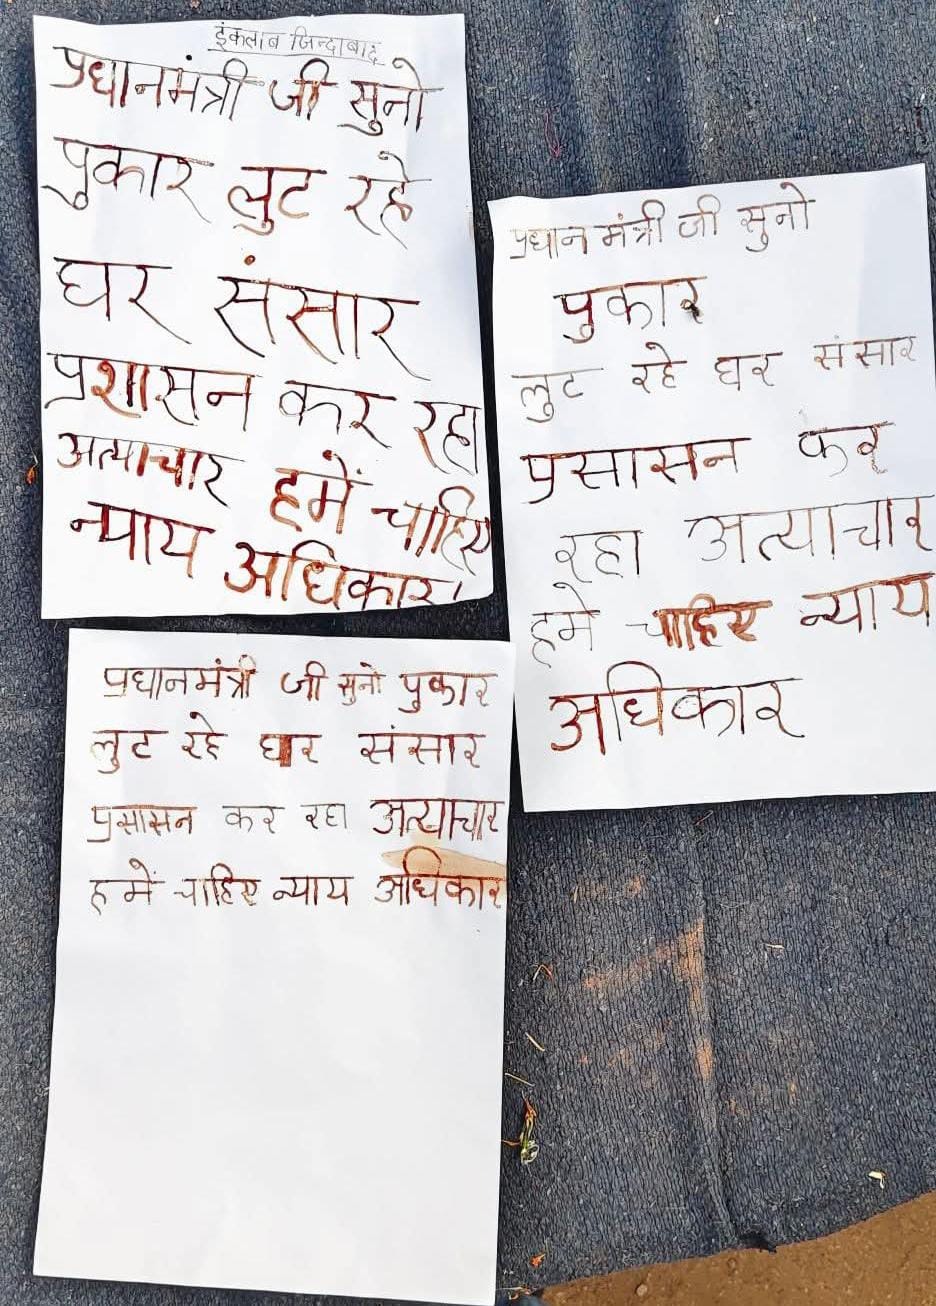 इंकलाब जिन्दाबाद
प्रधानमंत्री जी सुनो
पुकार लुट रहे
घर संसार
प्रशासन कर रहा
अत्याचार हमें चाहिए
न्याय अधिकार।
प्रधान मंत्री जी सुनो
पुकार
लुट रहे घर संसार
प्रसासन कर
रहा अत्याचार
हमे चाहिए न्याय
अधिकार
प्रधानमंत्री जी सुनो पुकार
लुट रहे घर संसार
प्रसासन कर रहा अत्याचार
हमें चाहिए न्याय अधिकार